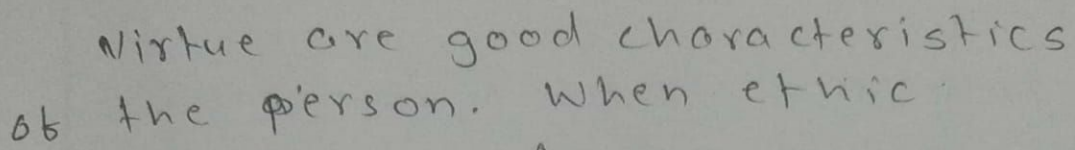 Virtue are good characteristics
of the person. When ethic